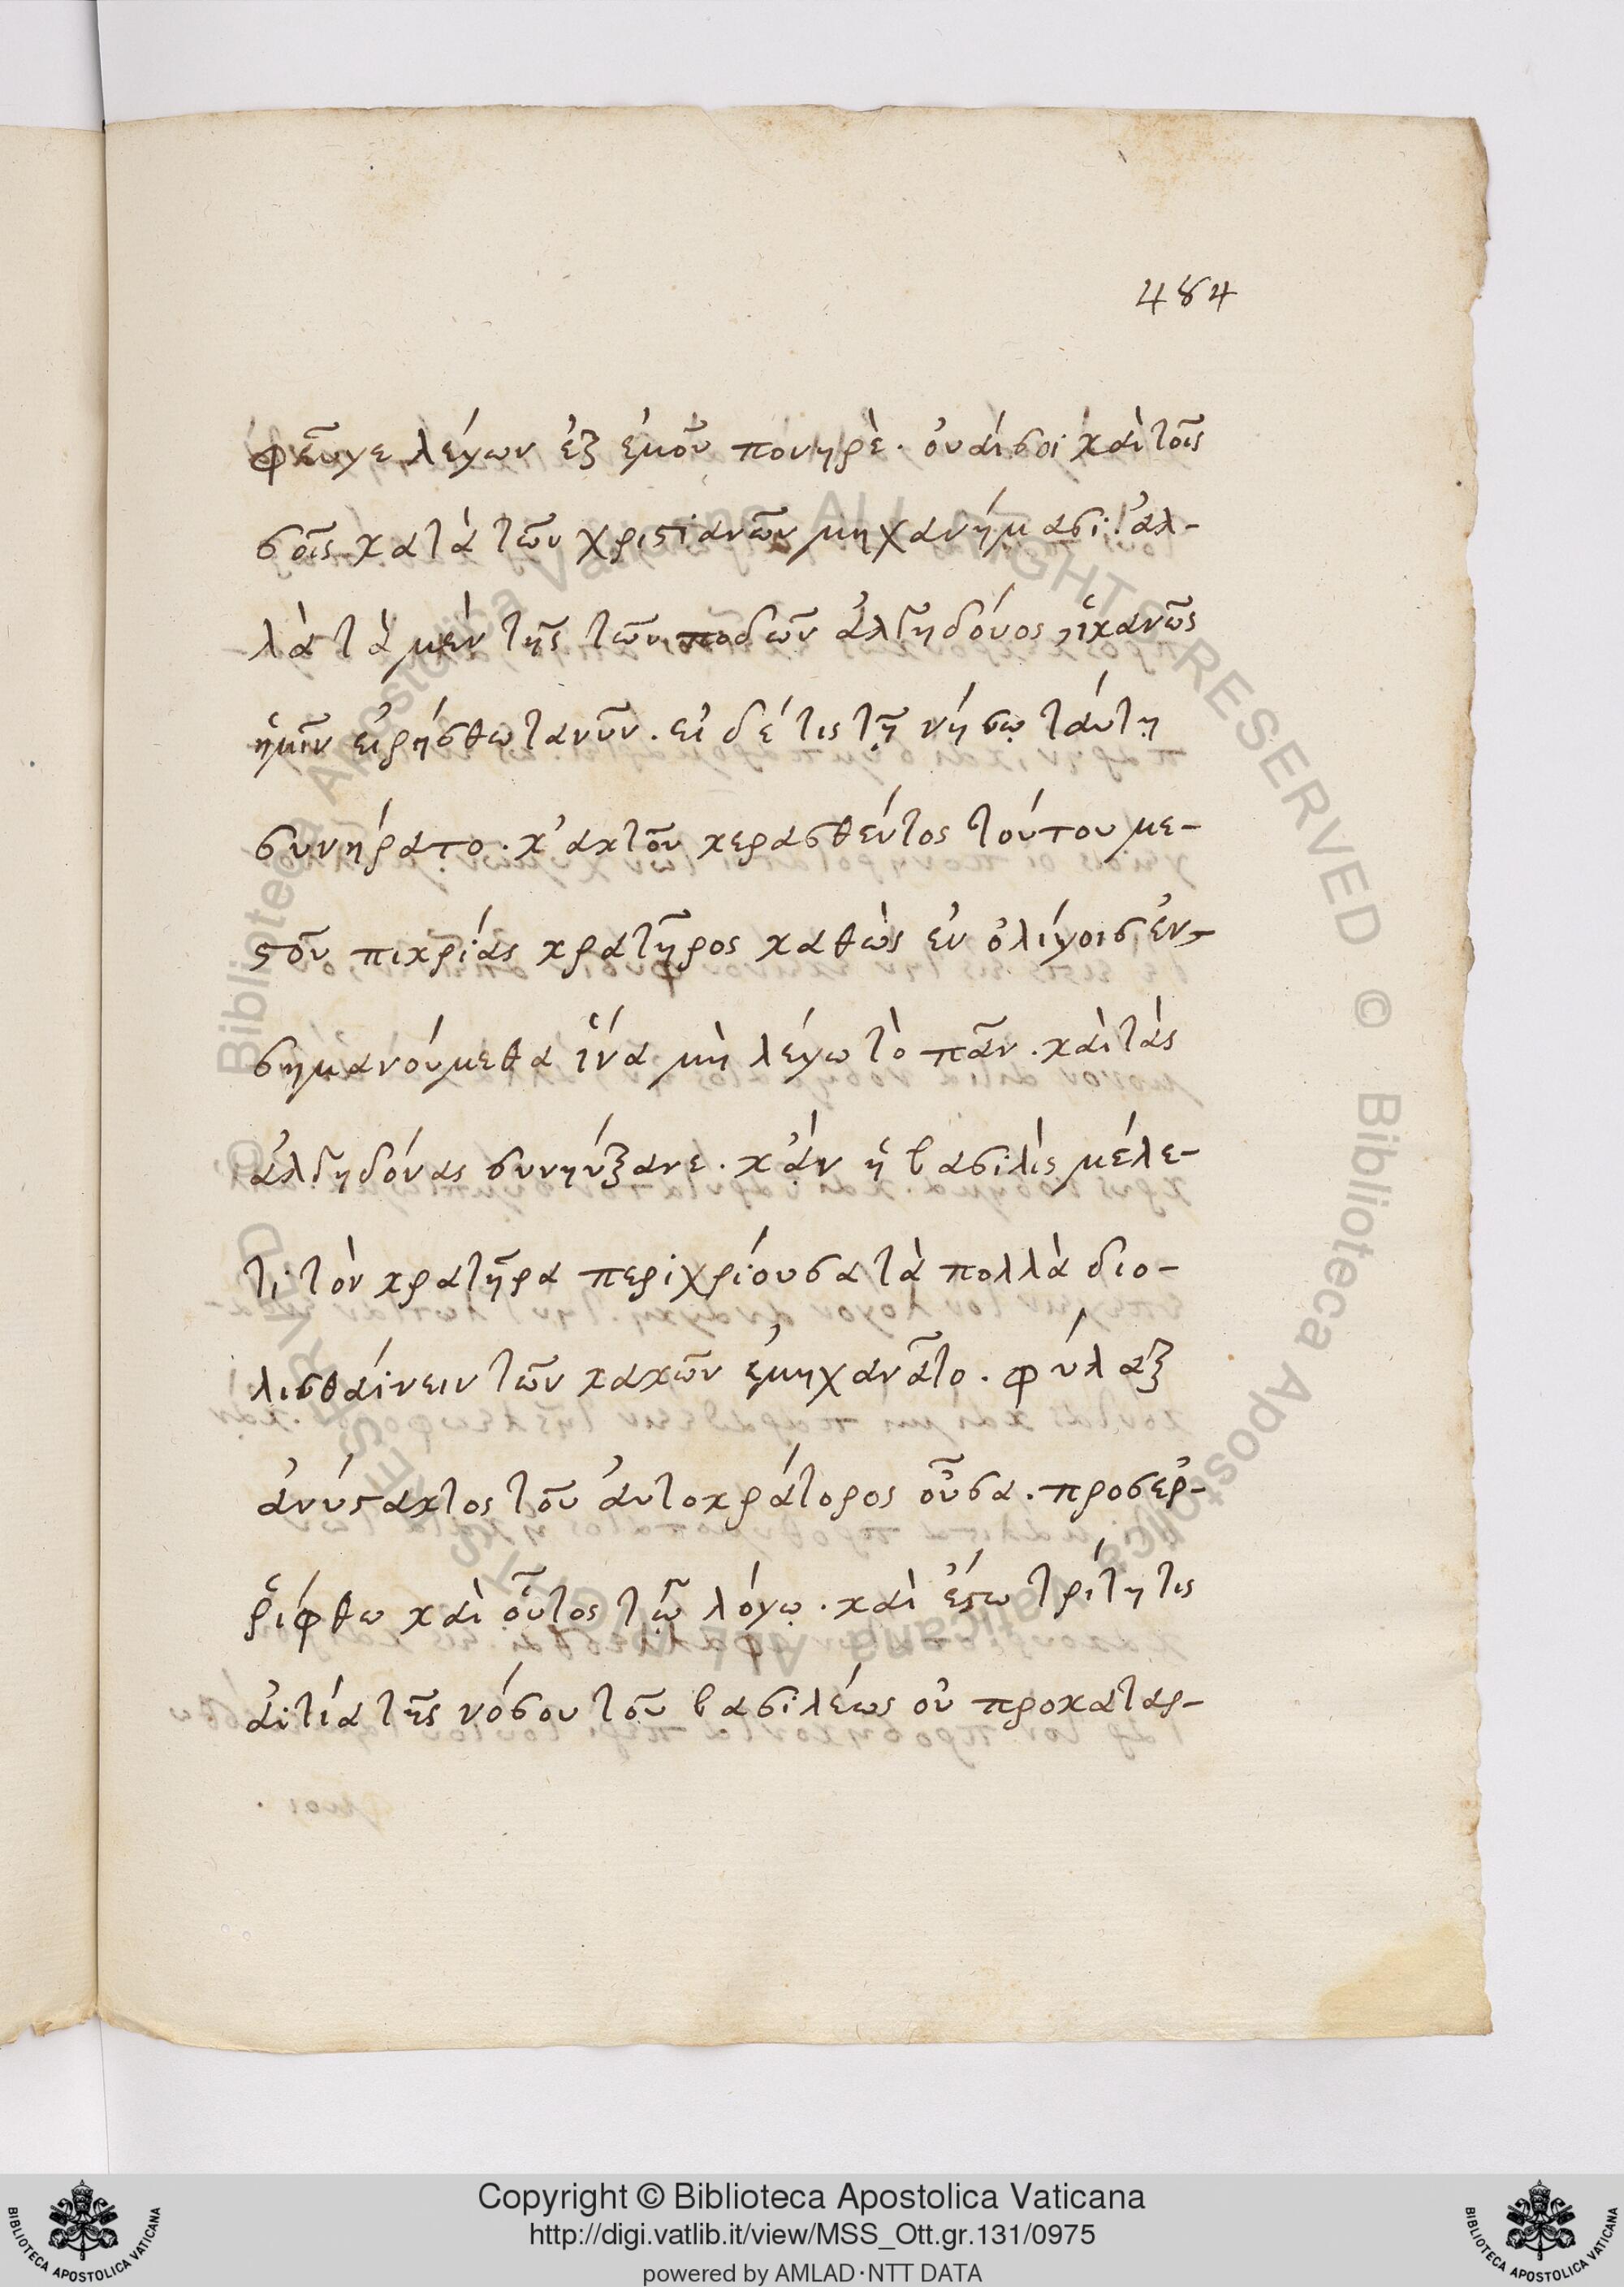 484
φεῦγε λέγων ἐξ ἐμοῦ πονηρὲ. οὐαί σοι καὶ τοῖς
σοῖς κατὰ τῶν χριστιανῶν μηχανήμασι! ἀλ-
λὰ τὰ μὲν τῆς τῶν ποδῶν ἀλγηδόνος, ἱκανῶς
ἡμῖν εἰρήσθω τανῦν. εἰ δέ τις τῇ νήσῳ ταύτῃ
συνήρατο. κἀκ τοῦ κερασθέντος τούτου με-
στοῦ πικρίας κρατῆρος καθὼς ἐν ὀλίγοις ἐν-
σημανούμεθα ἵνα μὴ λέγω τὸ πᾶν. καὶ τὰς
ἀλγηδόνας συνηύξανε. κἂν ἡ βασιλὶς μέλε-
τι τὸν κρατῆρα περιχρίουσα τὰ πολλὰ διο-
λισθαίνειν τῶν κακῶν ἐμηχανᾶτο. φύλαξ
ἀνύστακτος τοῦ αὐτοκράτορος οὖσα. προσερ-
ρίφθω καὶ οὗτος τῷ λόγῳ. καὶ ἔστω τρίτη τις
αἰτία τῆς νόσου τοῦ βασιλέως οὐ προκαταρ-
Copyright © Biblioteca Apostolica Vaticana
http://digi.vatlib.it/view/MSS_Ott.gr.131/0975
powered by AMLAD·NTT DATA